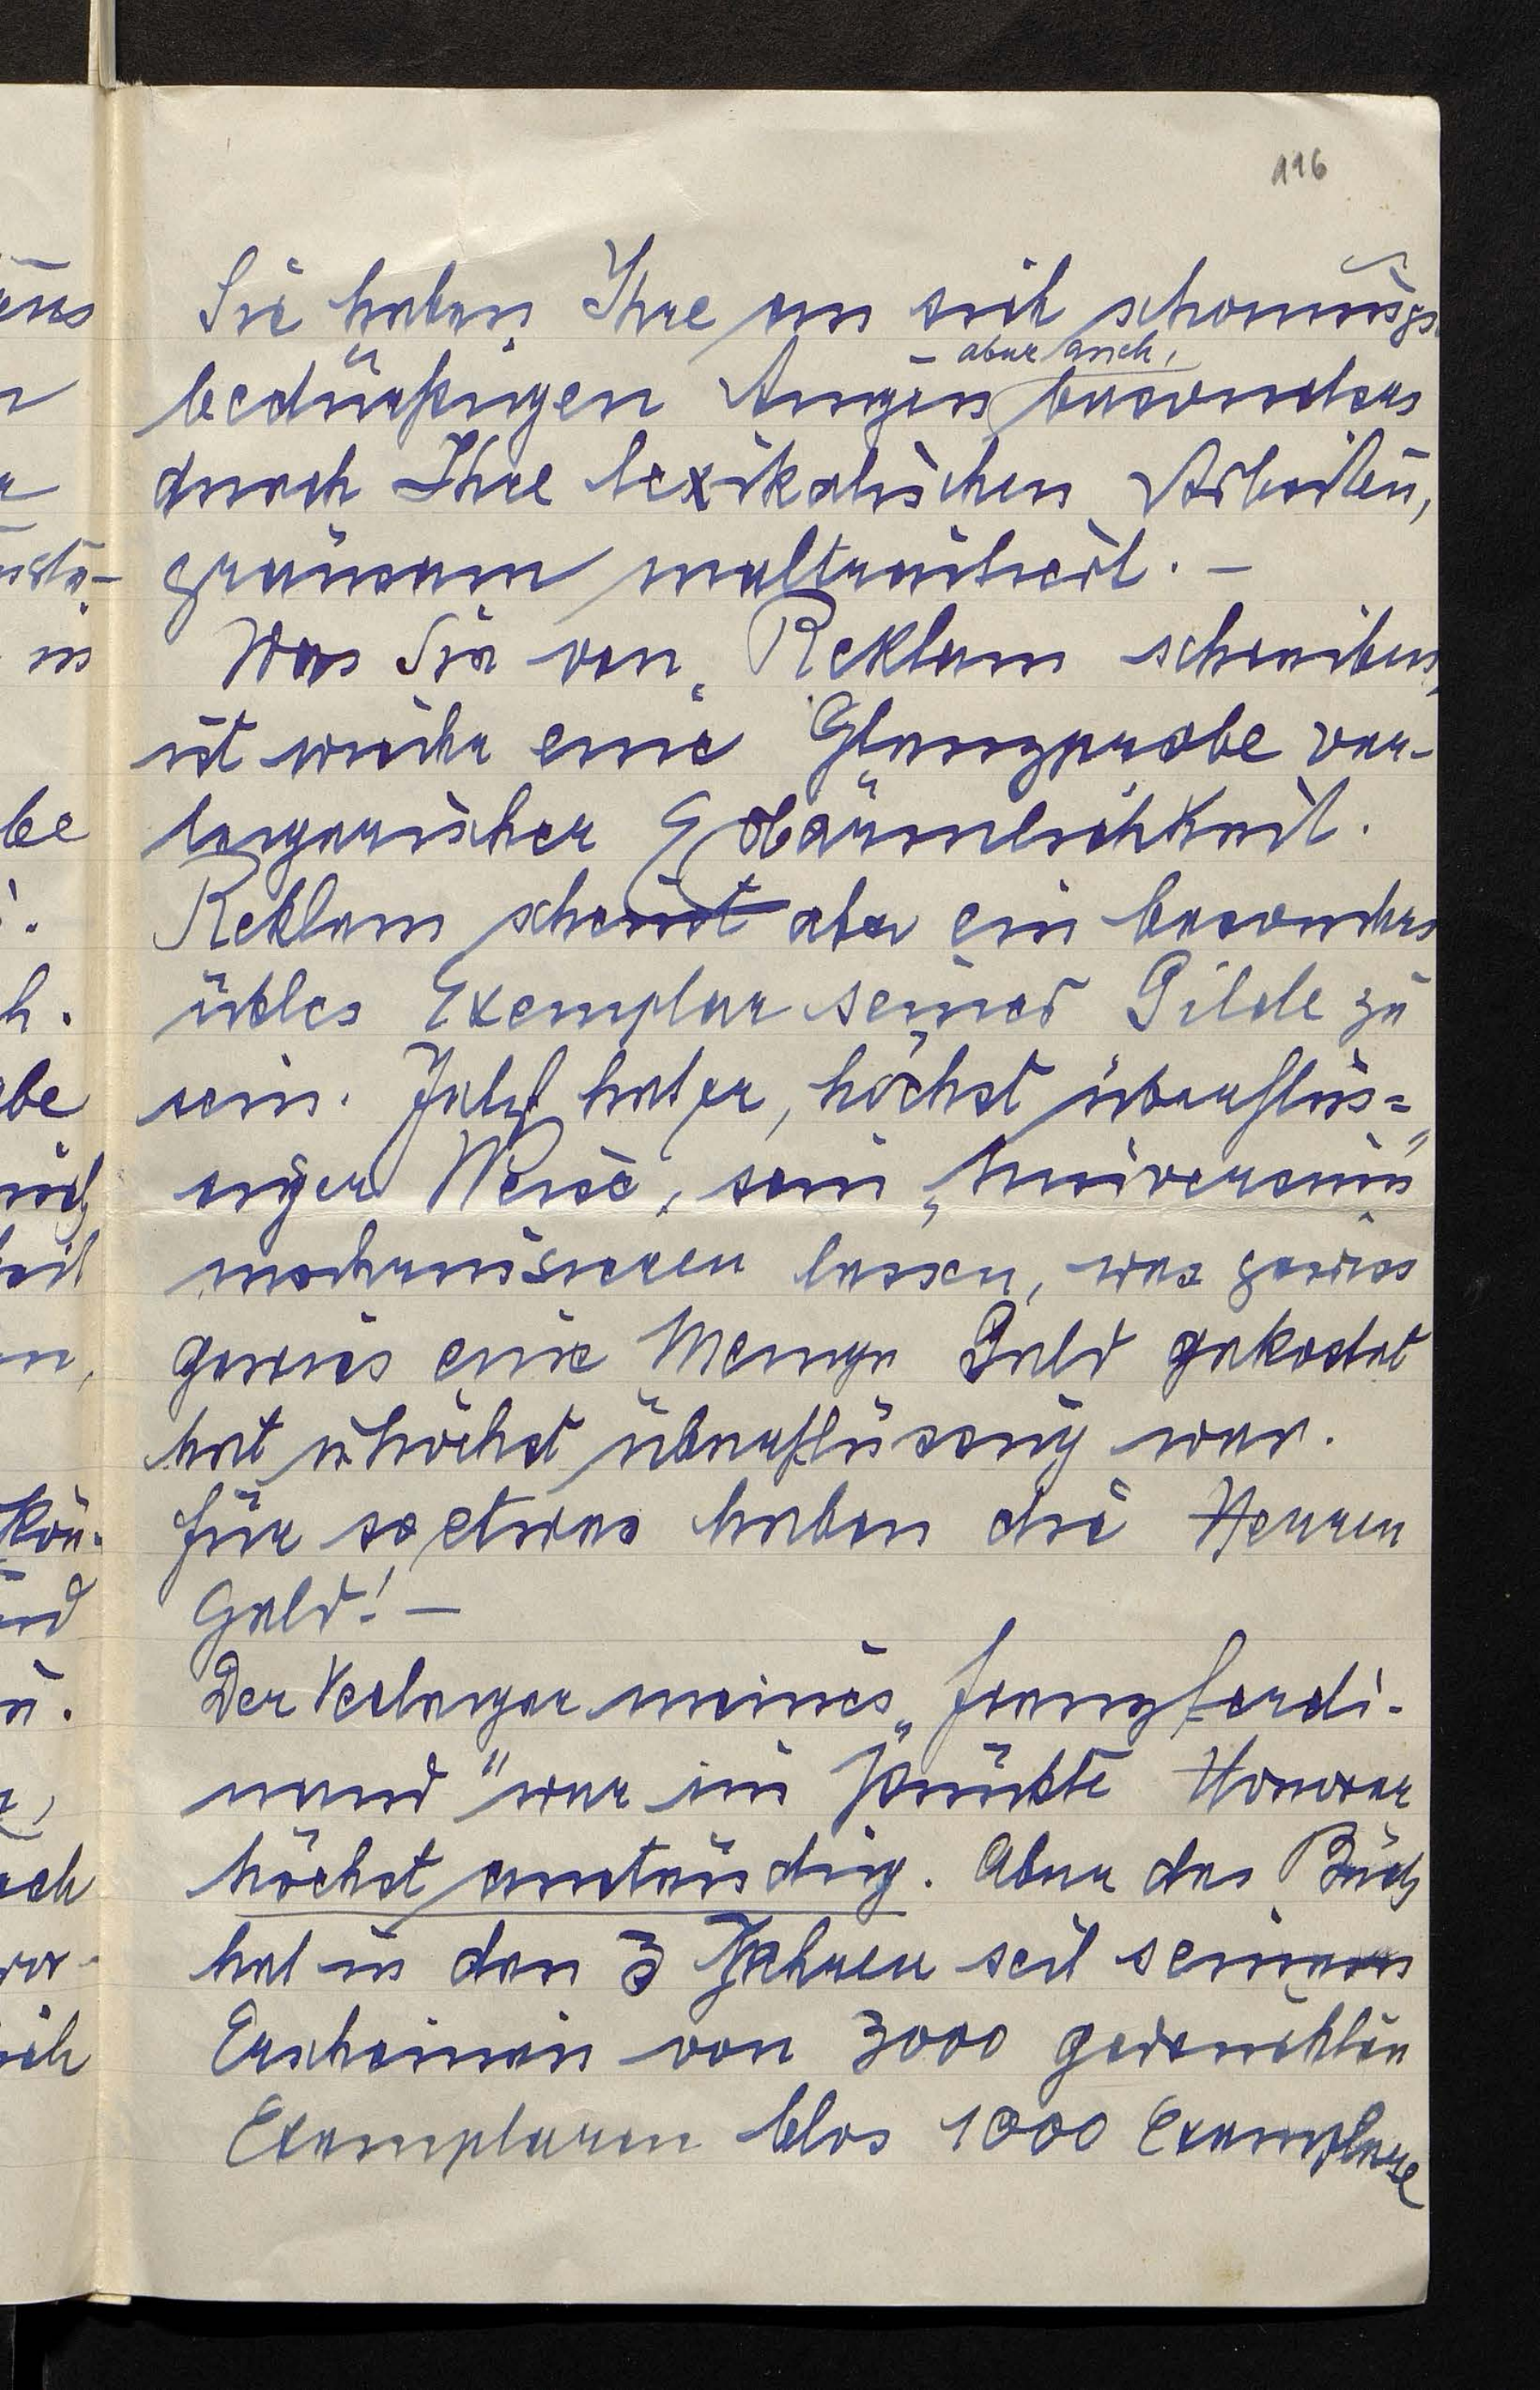 116
Sie haben Ihre an sich schonungs-
aber auch,
bedürftigen Augen besonders
durch Ihre lexikalischen Arbeiten,
grausam maltraitiert. –
Was Sie von Reklam schreiben,
ist wieder eine Glanzprobe ver-
legerischer Erbärmlichkeit.
Reklam scheint aber ein besonders
übles Exemplar seiner Gilde zu
sein. Jetzt hat er, höchst überflüs=
siger Weise, sein „Universum"
modernisieren lassen, was gewiss
gewiss eine Menge Geld gekostet
hat u. höchst überflüssig war.
Für so etwas haben die Herren
Geld! –
Der Verleger meines „Franz Ferdi-
nand" war im Punkte Honorar
höchst anständig. Aber das Buch
hat in den 3 Jahren seit seinem
Erscheinen von 3000 gedruckten
Exemplaren blos 1000 Exemplare